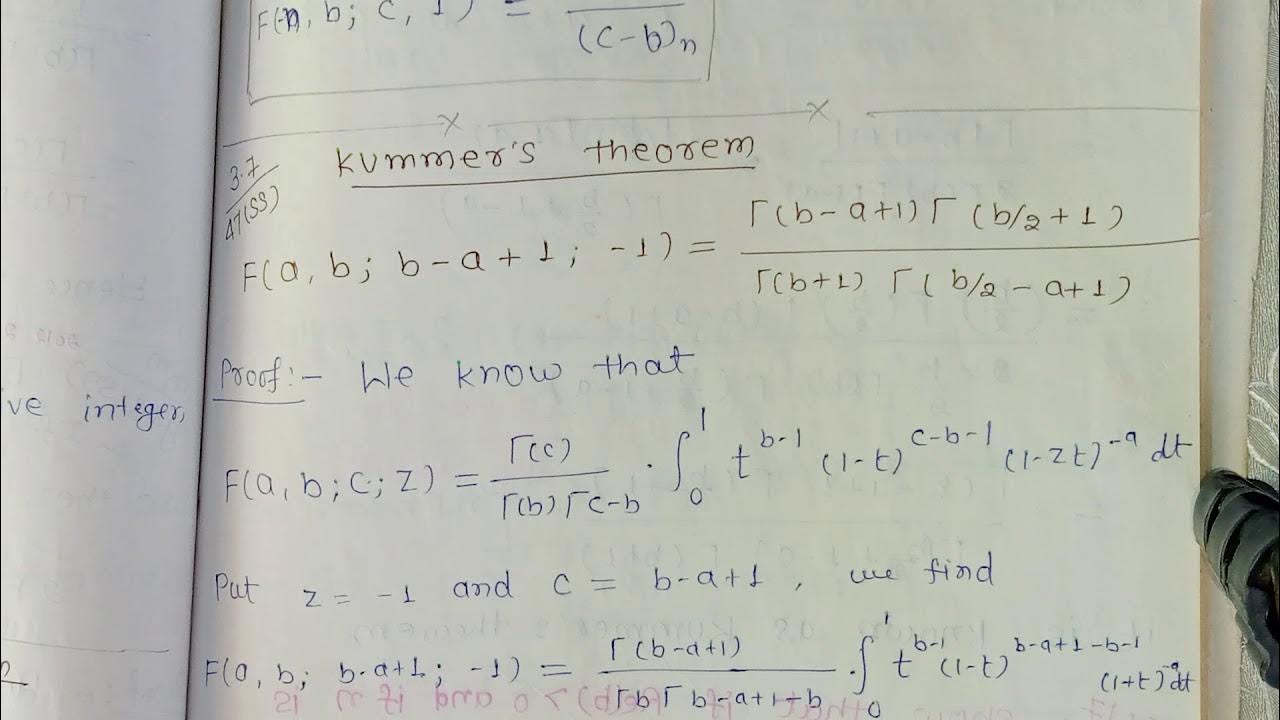 F(-n, b; c, 1) =
(c-b)n
3.7
47(SS)
Kummer's theorem
F(a, b; b-a+1; -1) = Γ(b-a+1) Γ(b/2+1) / Γ(b+1) Γ(b/2-a+1)
Proof:- We know that
ve integer,
F(a, b; c; z) = Γ(c) / Γ(b) Γc-b · ∫₀¹ t^{b-1} (1-t)^{c-b-1} (1-zt)^{-a} dt
Put z = -1 and c = b-a+1, we find
F(a, b; b-a+1; -1) = Γ(b-a+1) / Γb Γb-a+1-b · ∫₀¹ t^{b-1} (1-t)^{b-a+1-b-1} (1+t)^{-a} dt